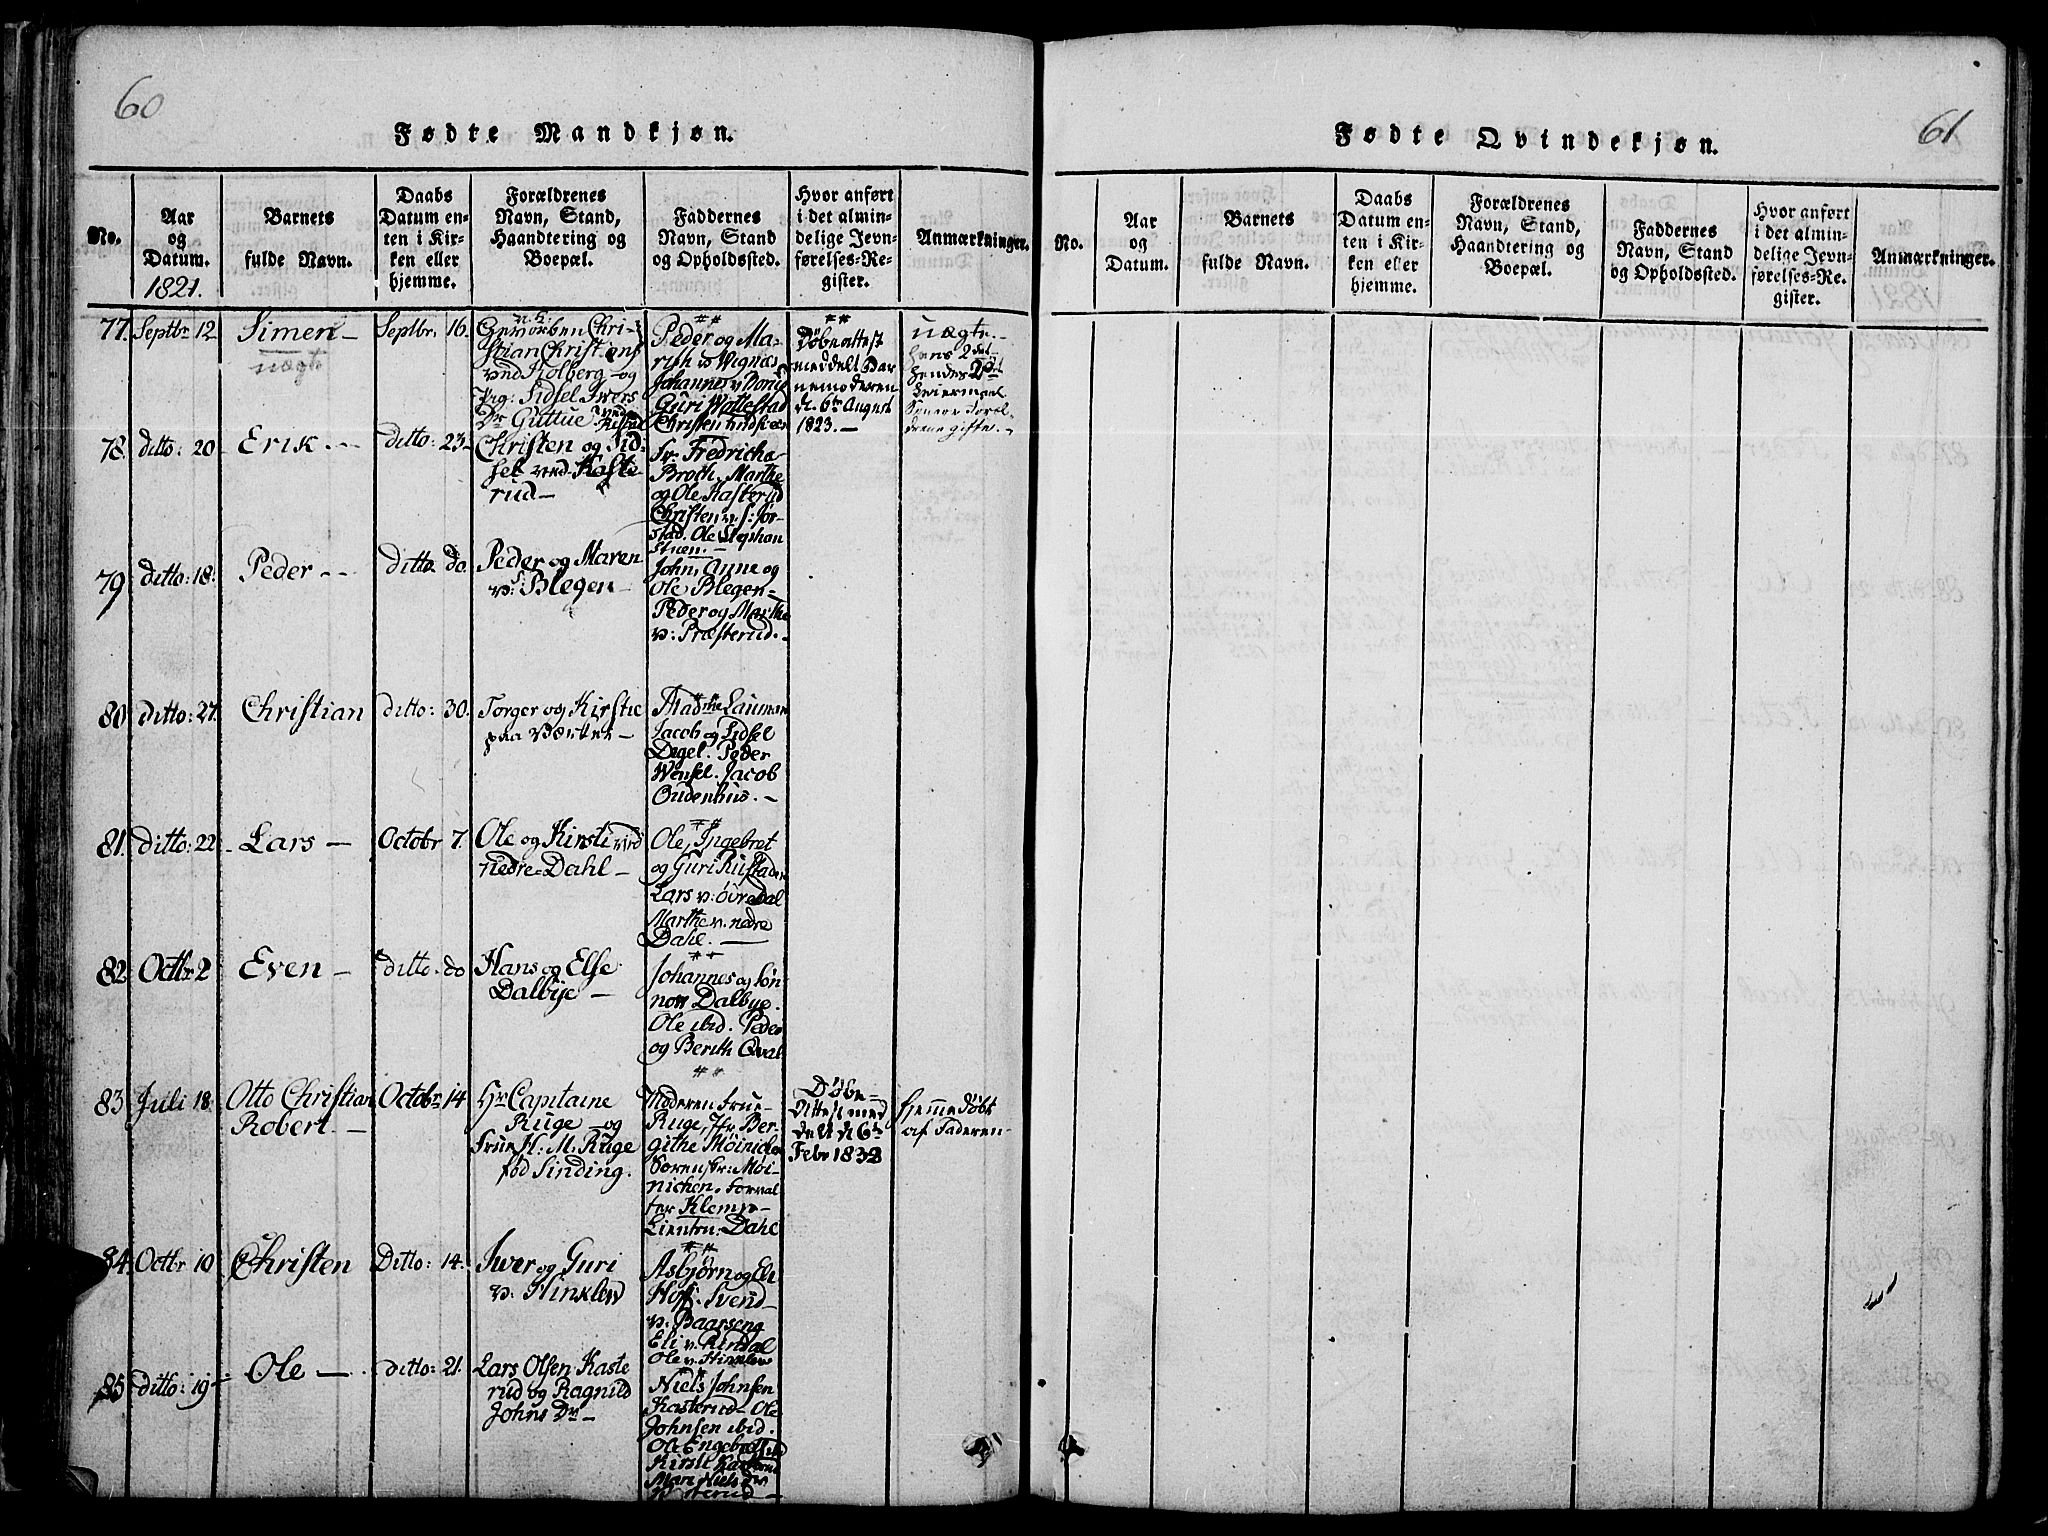 60
Fødte Mandkjøn.
No.
Aar
og
Datum.
1821.
Barnets
fulde Navn.
Daabs
Datum en-
ten i Kir-
ken eller
hjemme.
Forældrenes
Navn, Stand,
Haandtering og
Boepæl.
Faddernes
Navn, Stand
og Opholdssted.
Hvor anført
i det almin-
delige Jevn-
førelses-Re-
gister.
Anmærkninger.
77. Septbr 12
Simen —
uægte
Septbr. 16.
Christian Christians
ved Kolberg og
Pig: Sidsel Ivers
Dr Guttue
Peder og Ma-
rith v Vignes
Johannes v
Guri Wattestad
Christen
Døbeattest
meddelt Bar
nemoderen
d. 6te August
1823. —
uægte
hans 2det
hendes 2det
Leiermaal
78. ditto: 20
Erik. --
ditto: 23
Christen og Sid-
sel ved Kaste
rud —
Fr. Fredricha
Broch. Marthe
og Ole Kasterud
Christen v. S: Jør-
stad. Ole Stephen
stuen. —
79 ditto: 18.
Peder --
ditto do
Peder og Maren
v: Blegen —
John, Anne og
Ole Blegen —
Peder og Marthe
v: Præsterud. —
80. ditto: 27.
Christian
ditto: 30.
Torger og Kirstie
paa Værket —
Jacob og Sidsel
Degel. Peder
Wensel. Jacob
Oudenhus. —
81. ditto: 22.
Lars —
Octobr 7.
Ole og Kirsti ved
nedre=Dahl —
Ole, Ingebret
og Guri Rustaden
Lars v: øvre dal
Marthe v. nedre
Dahl. —
82. Octbr 2
Even —
ditto. do
Hans og Else
Dalbye —
Johannes og Jøn-
non Dalbye.
Ole ibid. Peder
og Berith Qval
83 Juli 18.
Otto Christian
Robert. —
Octobr. 14
Hr Capitaine
Ruge — og
Frue H. M. Ruge
fød Sinding.
Moderen Frue
Ruge, Jfr Ber-
githe Møinichen
Soren Møi-
nichen. Forval
ter Klem
Lieuten: Dahl
Døbe-
Attest med
delt d 6te
Febr 1832
hjemmedøbt
af Faderen
84. Octbr 10
Christen
Ditto: 14.
Iver og Guri
v: Hinklev
Asbjørn og Eli
Hoff. Svend
v. Baarseng
Eli v. Rindal
Ole v. Hinklev
85 ditto: 19
Ole —
ditto: 21.
Lars Olsen Kaste
rud og Ragnild
Johns Dr —
Niels Johnsen
Kasterud — Ole
Johnsen ibid.
Ole Engebret
Kirsti
Mari Niels dr
61
Fødte Qvindekjøn.
No.
Aar
og
Datum.
Barnets
fulde Navn.
Daabs
Datum en-
ten i Kir-
ken eller
hjemme.
Forældrenes
Navn, Stand,
Haandtering og
Boepæl.
Faddernes
Navn, Stand
og Opholdssted.
Hvor anført
i det almin-
delige Jevn-
førelses-Re-
gister.
Anmærkninger.